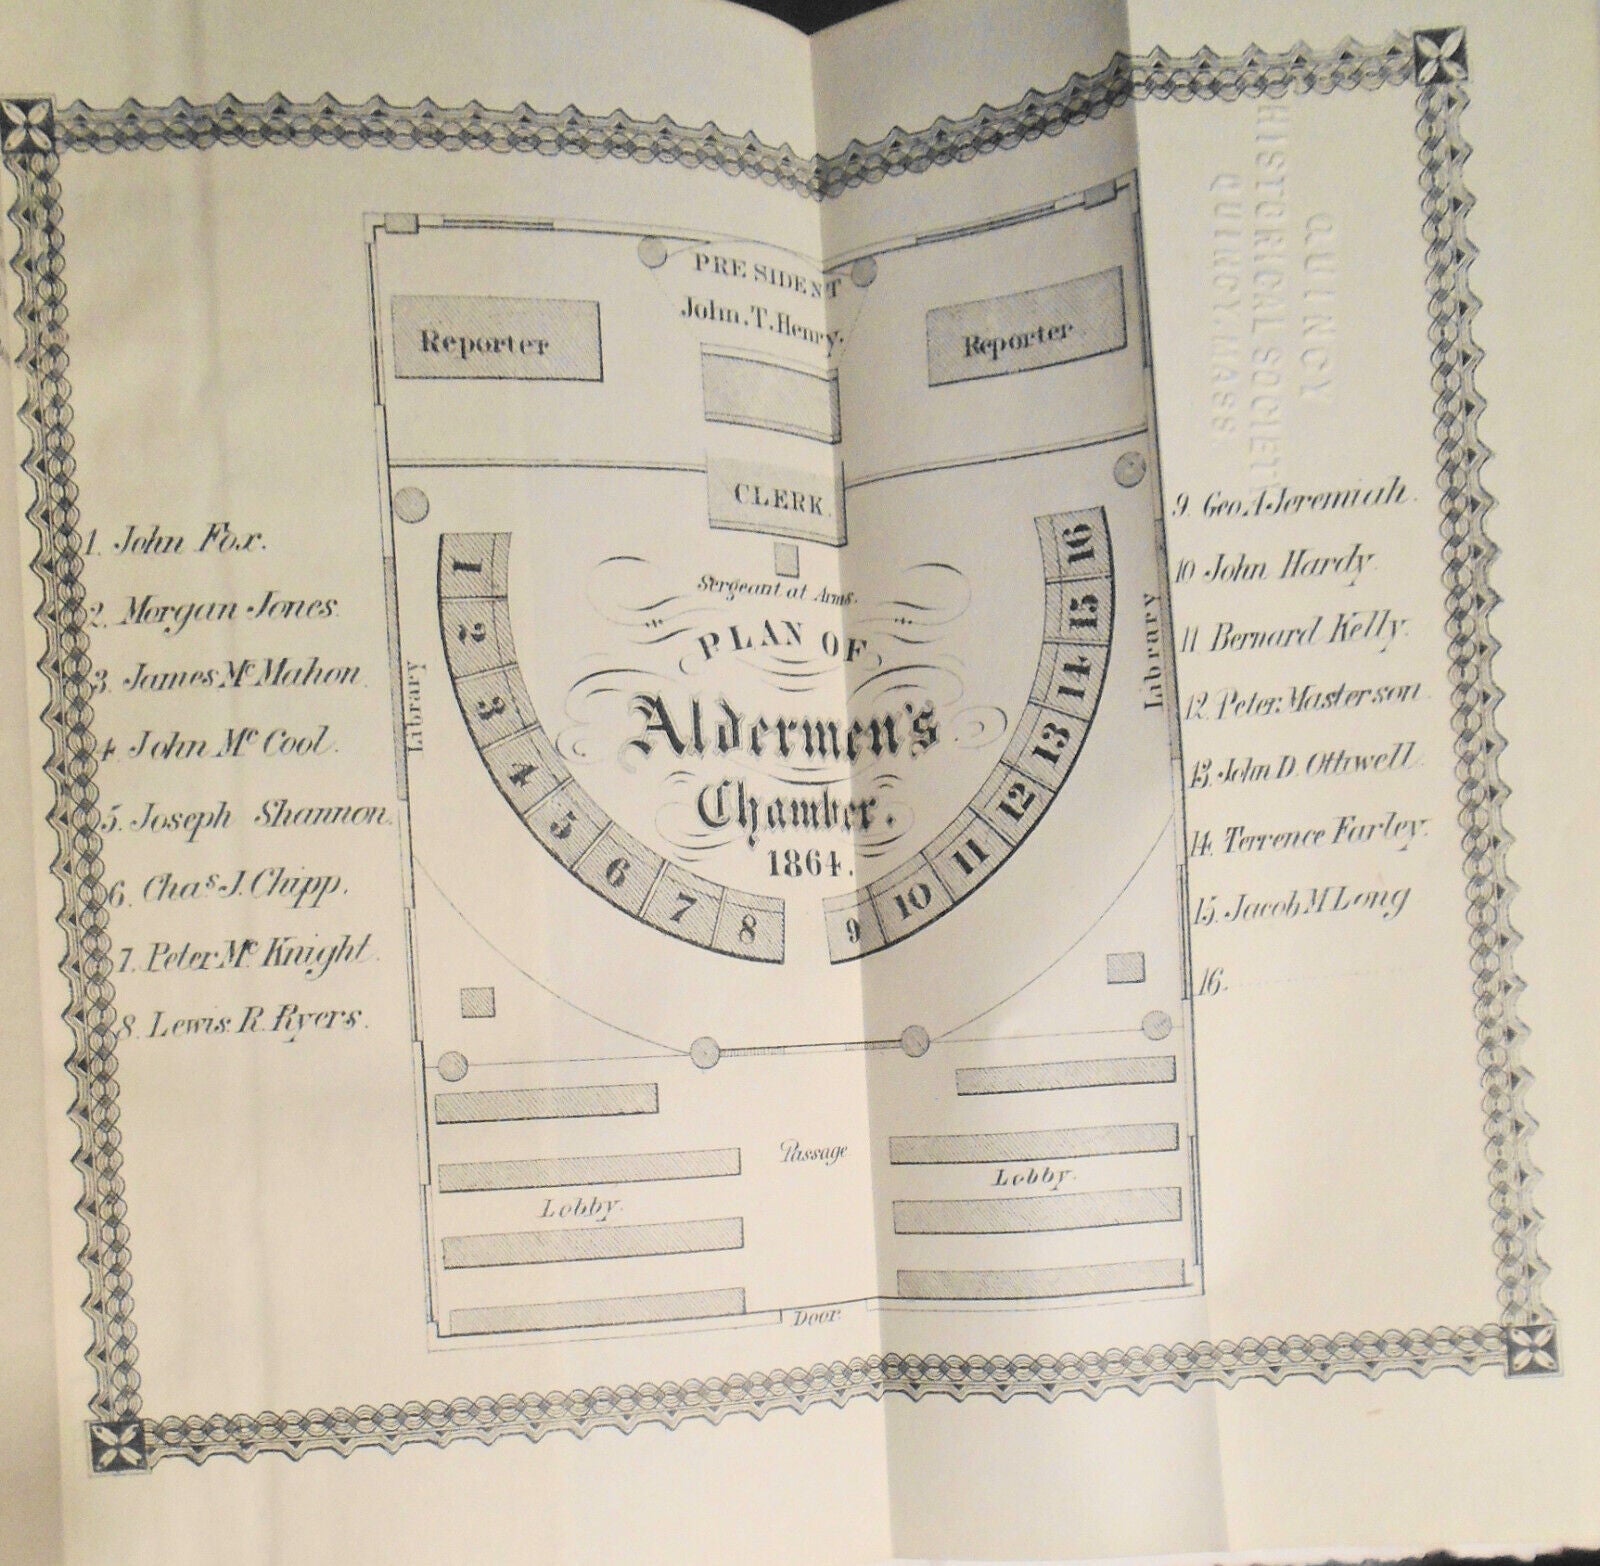 PRESIDENT
John. T. Henry.
Reporter
Reporter
CLERK.
Sergeant at Arms.
PLAN OF
Aldermen's
Chamber.
1864.
1
2
3
4
5
6
7
8
9
10
11
12
13
14
15
16
Library
Library
Passage
Lobby.
Lobby.
Door.
1. John Fox.
2. Morgan Jones.
3. James Mc Mahon.
4. John Mc Cool.
5. Joseph Shannon.
6. Chas J. Chipp.
7. Peter Mc Knight.
8. Lewis R. Ryers.
9. Geo. A. Jeremiah.
10 John Hardy.
11 Bernard Kelly.
12. Peter Masterson
13. John D. Ottiwell.
14. Terrence Farley.
15. Jacob M Long
16.
QUINCY
HISTORICAL SOCIETY
QUINCY, MASS